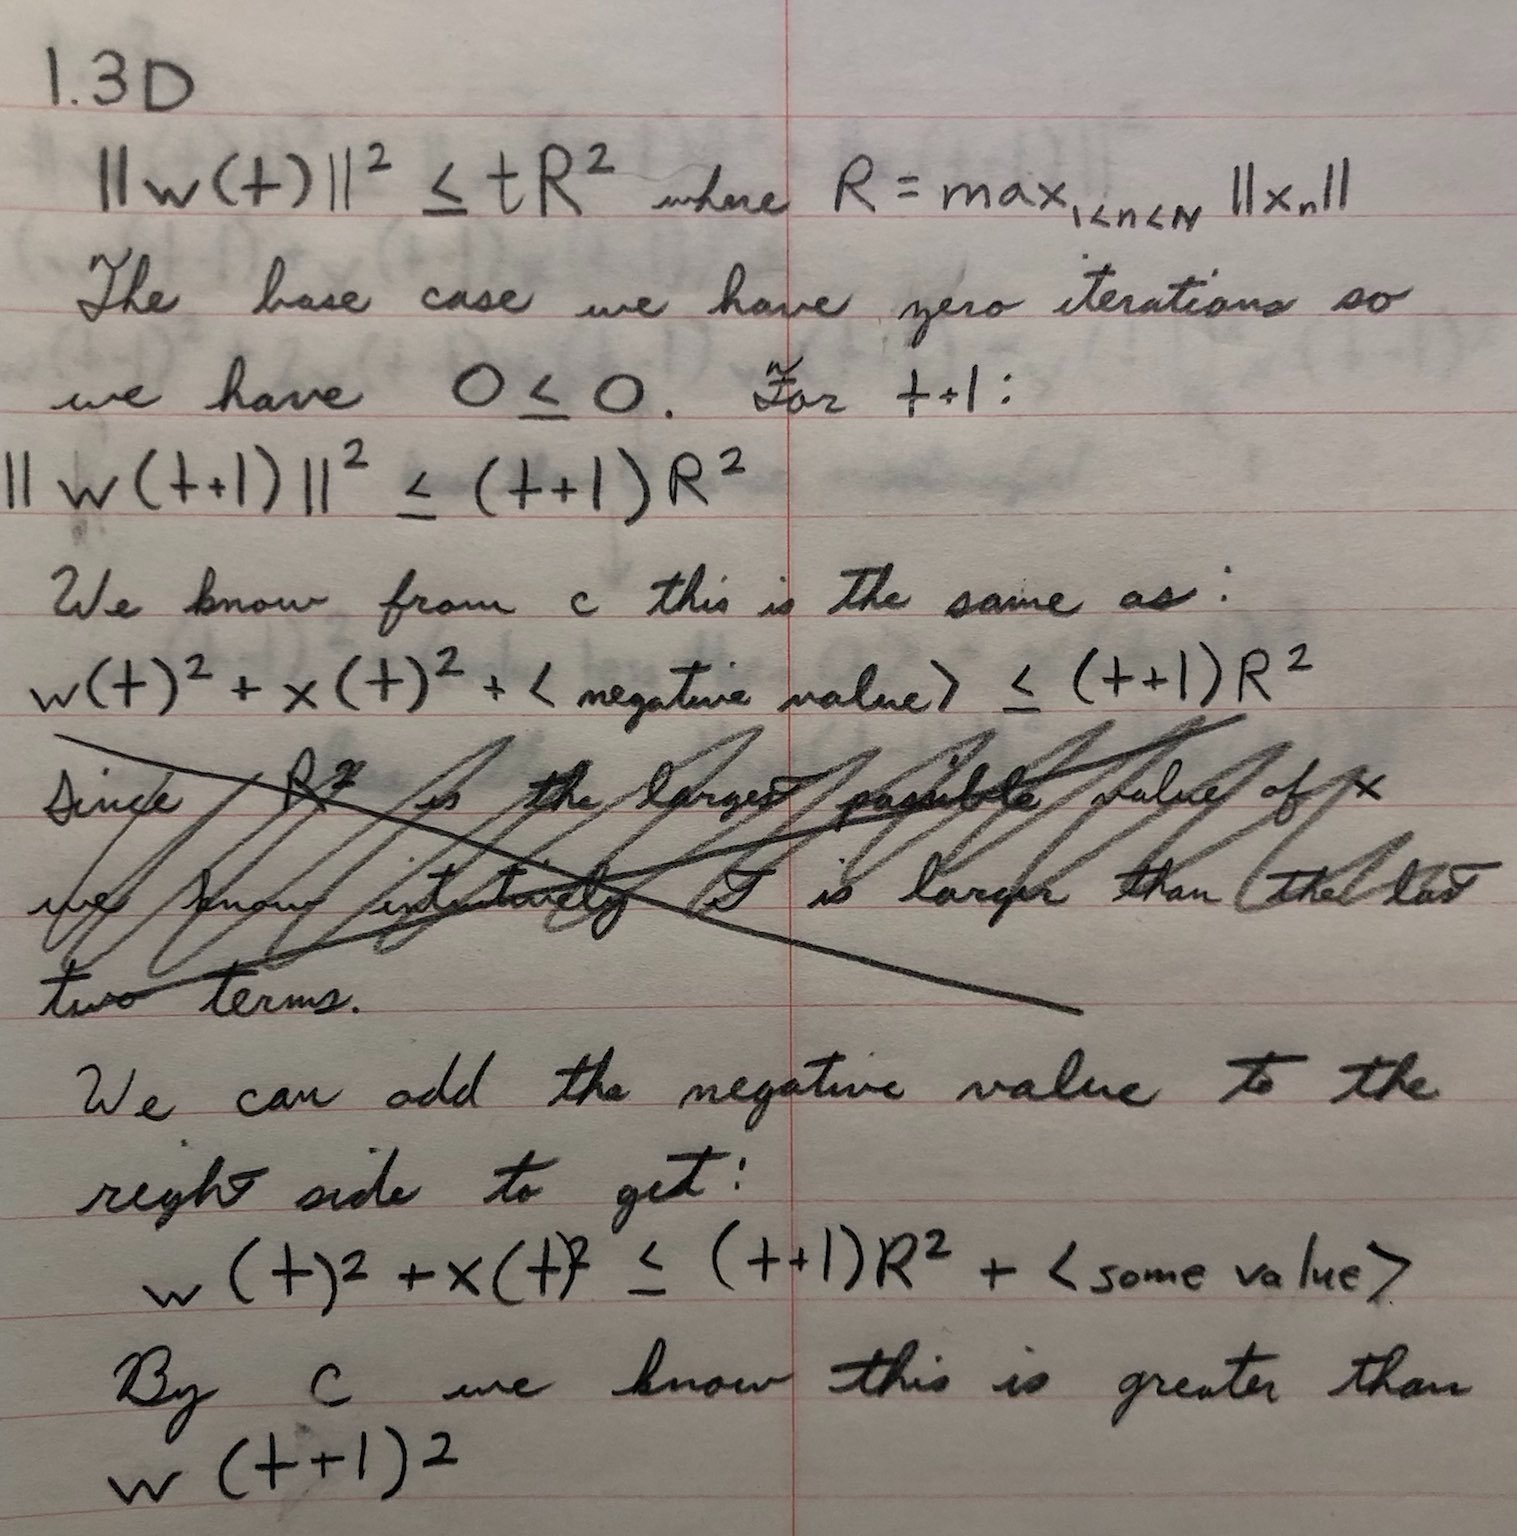 1.3D
||w(t)||² ≤ tR² where R = max₁<n<N ||xₙ||
The base case we have zero iterations so
we have 0 ≤ 0. For t+1:
||w(t+1)||² ≤ (t+1)R²
We know from c this is the same as:
w(t)² + x(t)² + <negative value> ≤ (t+1)R²
Since R² is the largest possible value of x
we know intuitively it is larger than the last
two terms.
We can add the negative value to the
right side to get:
w(t)² + x(t)² ≤ (t+1)R² + <some value>
By c we know this is greater than
w(t+1)²